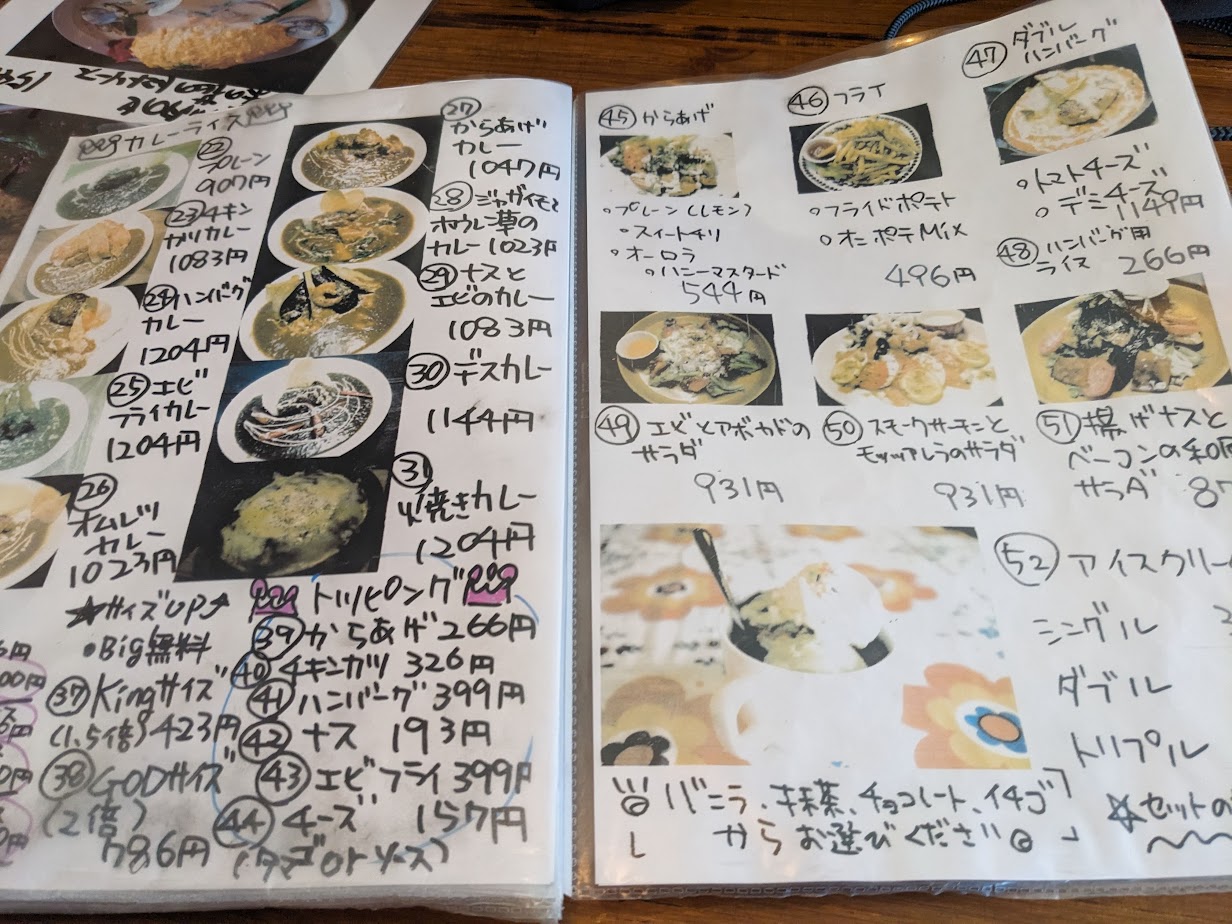 カレーライス
㉒
プレーン
907円
㉓チキン
カツカレー
1083円
㉔ハンバーグ
カレー
1204円
㉕エビ
フライカレー
1204円
㉖
オムレツ
カレー
1023円
㉗
からあげ
カレー
1047円
㉘ジャガイモと
ホウレン草の
カレー 1023円
㉙ナスと
エビのカレー
1083円
㉚デスカレー
1144円
㉛
焼きカレー
1204円
★サイズUP↗
•Big無料
㊲Kingサイズ
(1.5倍)423円
㊳GODサイズ
(2倍)
786円
トッピング
㊴からあげ266円
㊵チキンカツ 326円
㊶ハンバーグ 399円
㊷ナス 193円
㊸エビフライ 399円
㊹チーズ 157円
(タマゴorソース)
㊺からあげ
○プレーン(レモン)
○スイートチリ
○オーロラ
○ハニーマスタード
544円
㊻フライ
○フライドポテト
○オニポテMix
496円
㊼ダブル
ハンバーグ
○トマトチーズ
○デミチーズ
1149円
㊽ハンバーグ用
ライス 266円
㊾エビとアボカドの
サラダ
931円
㊿スモークサーモンと
モッツァレラのサラダ
931円
51揚げナスと
ベーコンの
サラダ
52アイスクリー
シングル
ダブル
トリプル
☆セットの
バニラ、抹茶、チョコレート、イチゴ
からお選びください